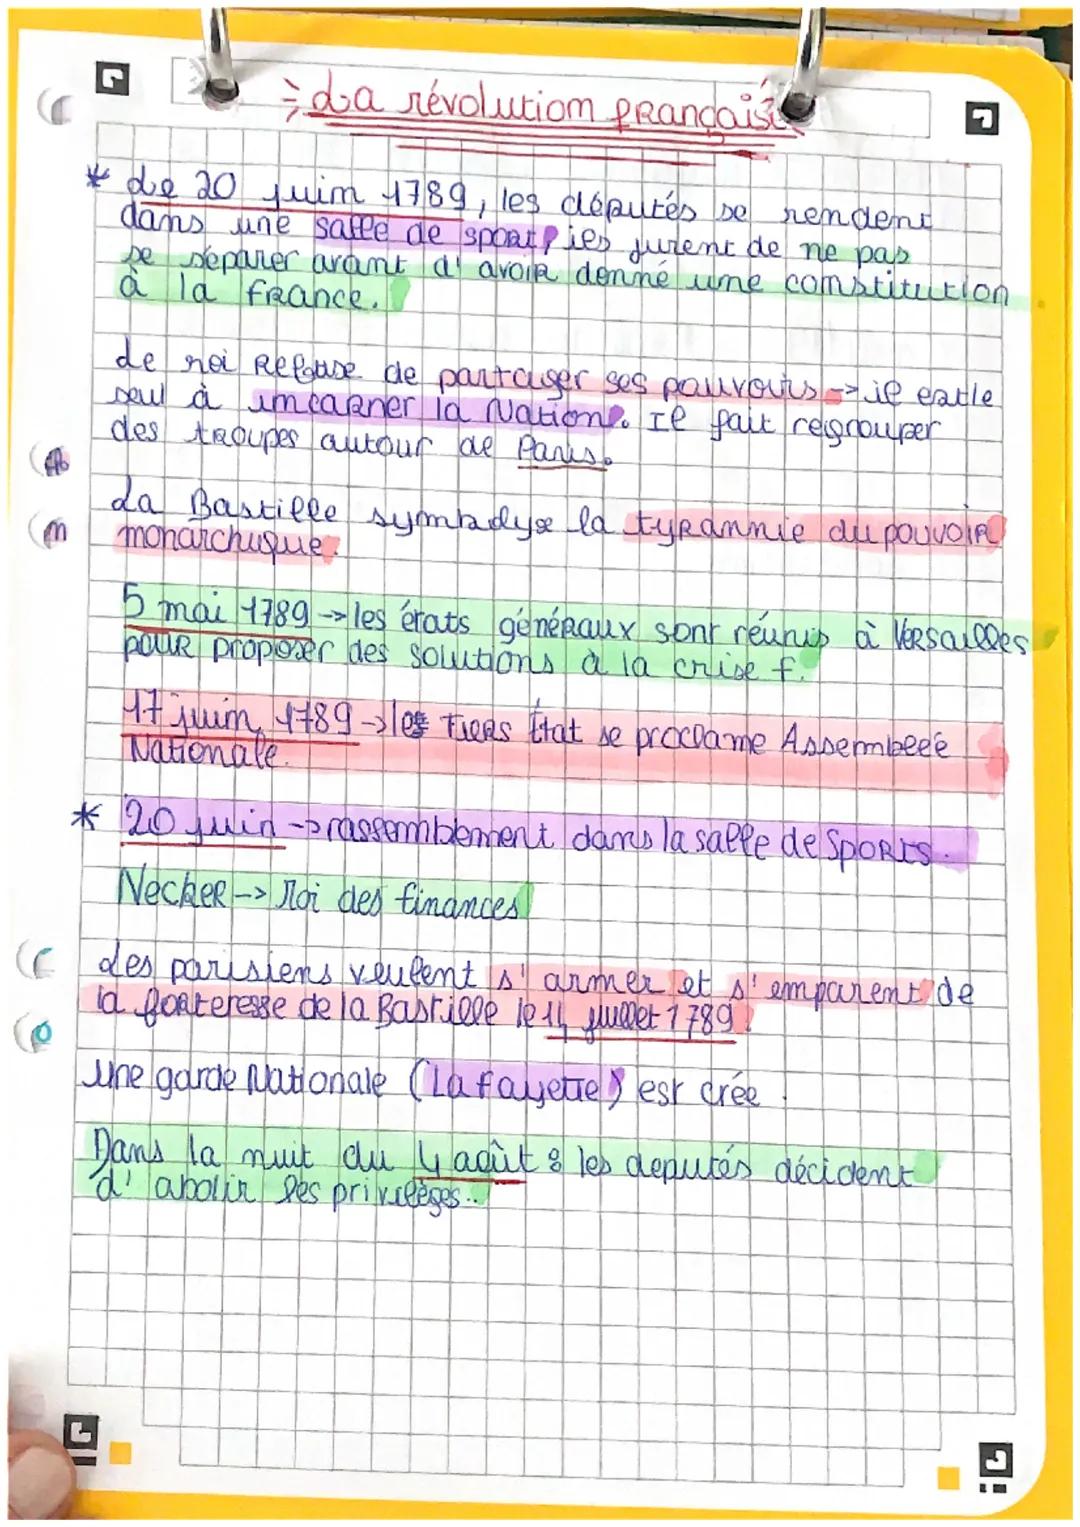 La révolution française
* Le 20 juin 1789, les députés se rendent
dans une salle de sport, ils jurent de ne pas
se séparer avant d'avoir donné une constitution
à la France.
Le roi refuse de partager ses pouvoirs -> il est le
seul à incarner la Nation. Il fait regrouper
des troupes autour de Paris.
La Bastille symbolyse la tyrannie du pouvoir
monarchique.
5 mai 1789 -> les états généraux sont réunis à Versailles
pour proposer des solutions à la crise f.
17 juin 1789 -> les tiers État se proclame Assemblée
Nationale.
* 20 juin -> rassemblement dans la salle de sports.
Necker -> roi des finances
des parisiens veulent s'armer et s'emparent de
la forteresse de la Bastille le 14 juillet 1789.
une garde Nationale (La fayette) est crée.
Dans la nuit du 4 août : les députés décident
d'abolir les privilèges..